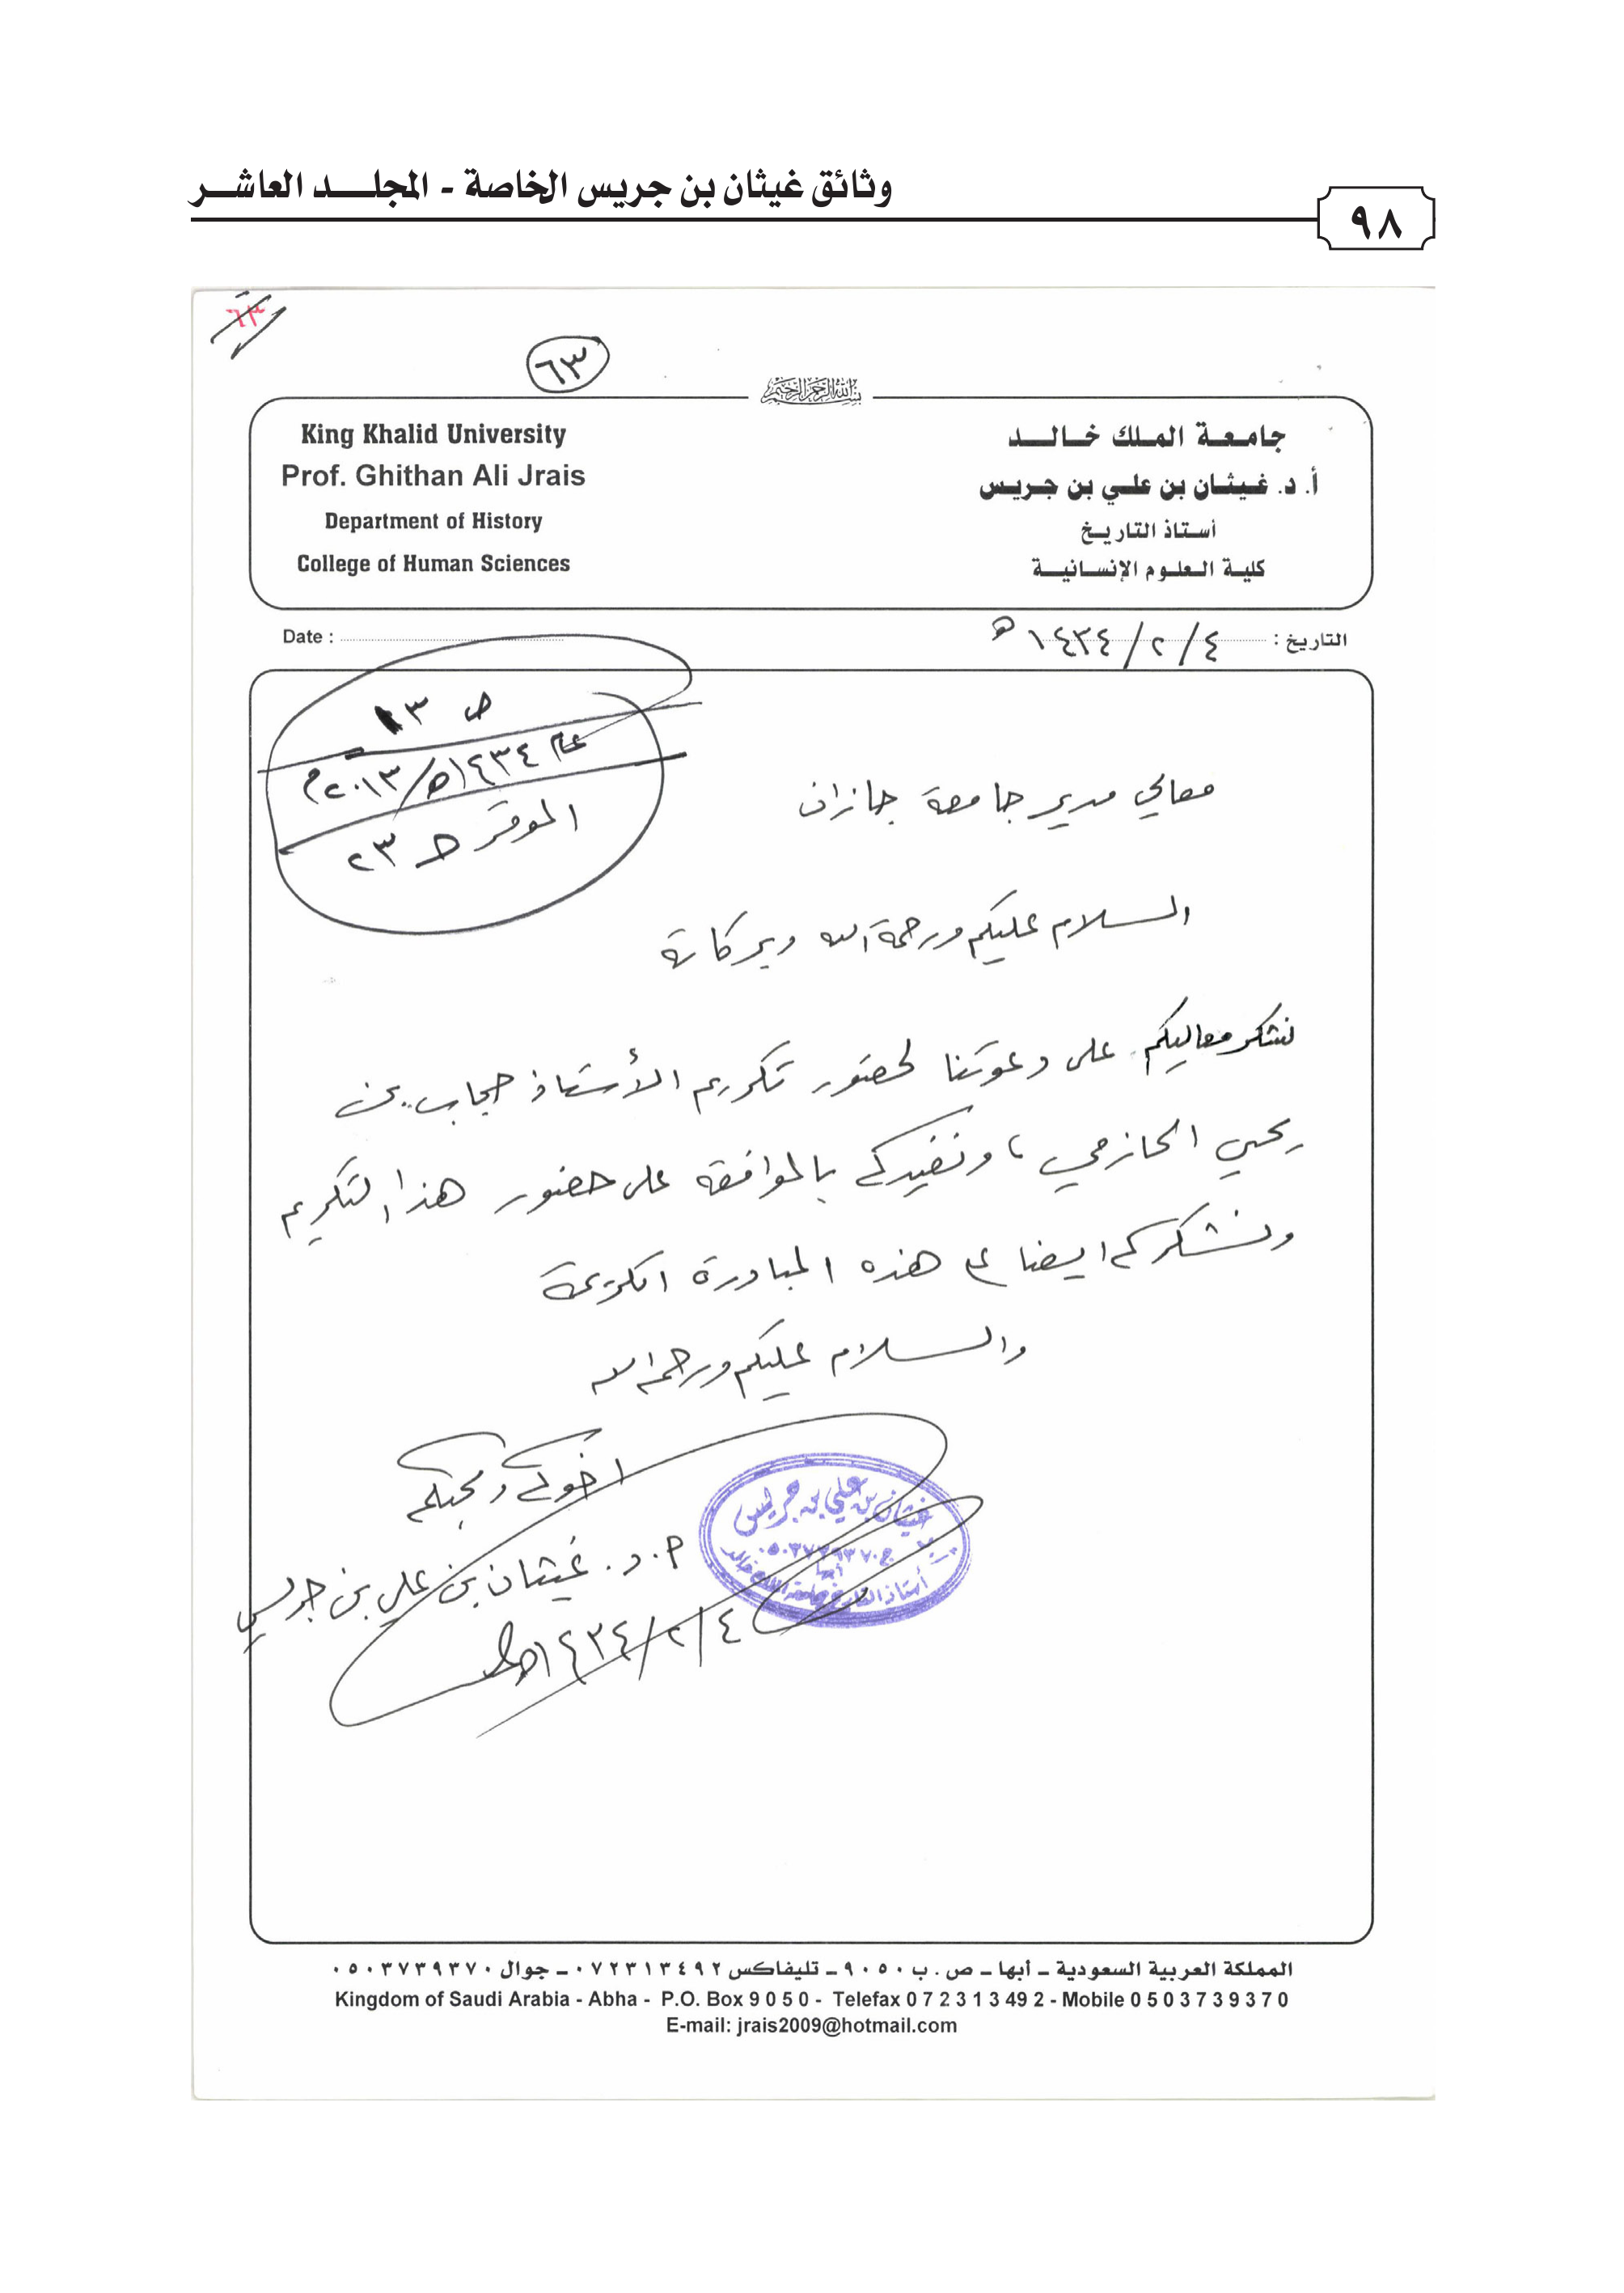 وثائق غيثان بن جريس الخاصة - المجلد العاشر
٩٨
٦٣
٦٣
بسم الله الرحمن الرحيم
جامعة الملك خالد
أ. د. غيثان بن علي بن جريس
أستاذ التاريخ
كلية العلوم الإنسانية
King Khalid University
Prof. Ghithan Ali Jrais
Department of History
College of Human Sciences
التاريخ : ٤ / ٢ / ١٤٣٤ هـ
Date :
ص ١٣
عام ١٤٣٤هـ/٢٠١٣م
الموقر ح ٢٣
معالي مدير جامعة جازان
السلام عليكم ورحمة الله وبركاته
نشكر معاليكم على دعوتنا لحضور تكريم الأستاذ حجاب بن
يحيى الحازمي ، ونفيدكم بالموافقة على حضور هذا التكريم
ونشكركم ايضا على هذه المبادرة الكريمة
والسلام عليكم ورحمة الله
اخوكم ومحبكم
أ.د. غيثان بن علي بن جريس
٤/٢/١٤٣٤هـ
غيثان بن علي بن جريس
ج ٠٥٠٣٧٣٩٣٧٠
أبها
أستاذ التاريخ بجامعة الملك خالد
المملكة العربية السعودية – أبها – ص . ب ٩٠٥٠ – تليفاكس ٠٧٢٣١٣٤٩٢ – جوال ٠٥٠٣٧٣٩٣٧٠
Kingdom of Saudi Arabia - Abha - P.O. Box 9 0 5 0 - Telefax 0 7 2 3 1 3 49 2 - Mobile 0 5 0 3 7 3 9 3 7 0
E-mail: jrais2009@hotmail.com